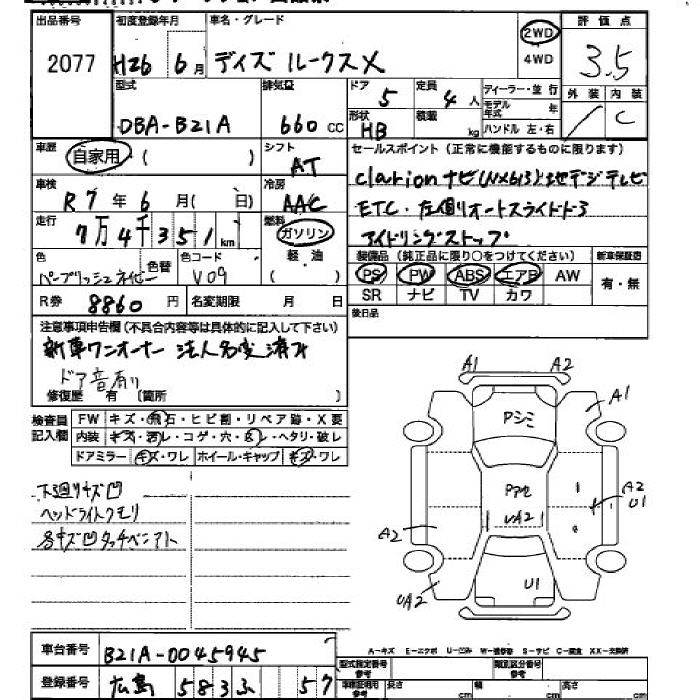 出品番号 初度登録年月 車名・グレード 2WD 評価点
2077 H26 6月 デイズ ルークス X 4WD 3.5
型式 排気量 ドア 定員 ディーラー・並行 外装 内装
DBA-B21A 660cc 5 4人 モデル年式 年 / C
形状 積載 ハンドル 左・右
HB kg
車歴 シフト セールスポイント(正常に機能するものに限ります)
自家用 ( ) AT
車検 冷房 clarionナビ(NX613)地デジテレビ
R7年6月( 日) AAC ETC・左側オートスライドドア
走行 燃料 アイドリングストップ
7万4千351km ガソリン
色 色替 色コード 軽油 装備品(純正品に限り○をつけてください) 新車保証書
V09 ( ) PS PW ABS エアB AW 有・無
SR ナビ TV カワ
R券 8860円 名変期限 月 日 後日品
注意事項申告欄(不具合内容等は具体的に記入して下さい)
新車ワンオーナー 法人名変済み
ドア音有り
修復歴 有 (箇所 )
A1 A2
A1
検査員記入欄 FW キズ・飛石・ヒビ割・リペア跡・X要
Pシミ
内装 キズ・汚レ・コゲ・穴・ヘタリ・破レ
ドアミラー キズ・ワレ ホイール・キャップ キズ・ワレ
下廻りキズ凹
ヘッドライトクモリ
各キズ凹タッチペンアト
A2 U1
UA2
A2
UA2 U1
A-キズ E-エクボ U-凹み W-補修跡 S-サビ C-腐食 XX-交換済
車台番号 B21A-0045945
型式指定番号参考 類別区分番号参考
登録番号 広島 583 ふ 57
車庫証明用参考 長さ cm 幅 cm 高さ cm